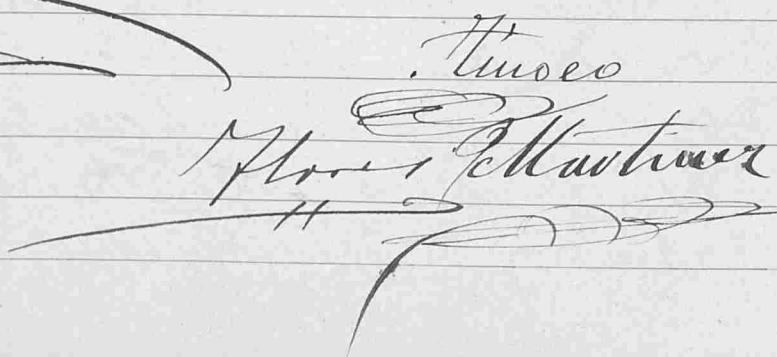 Tinoco
Flores Martinez